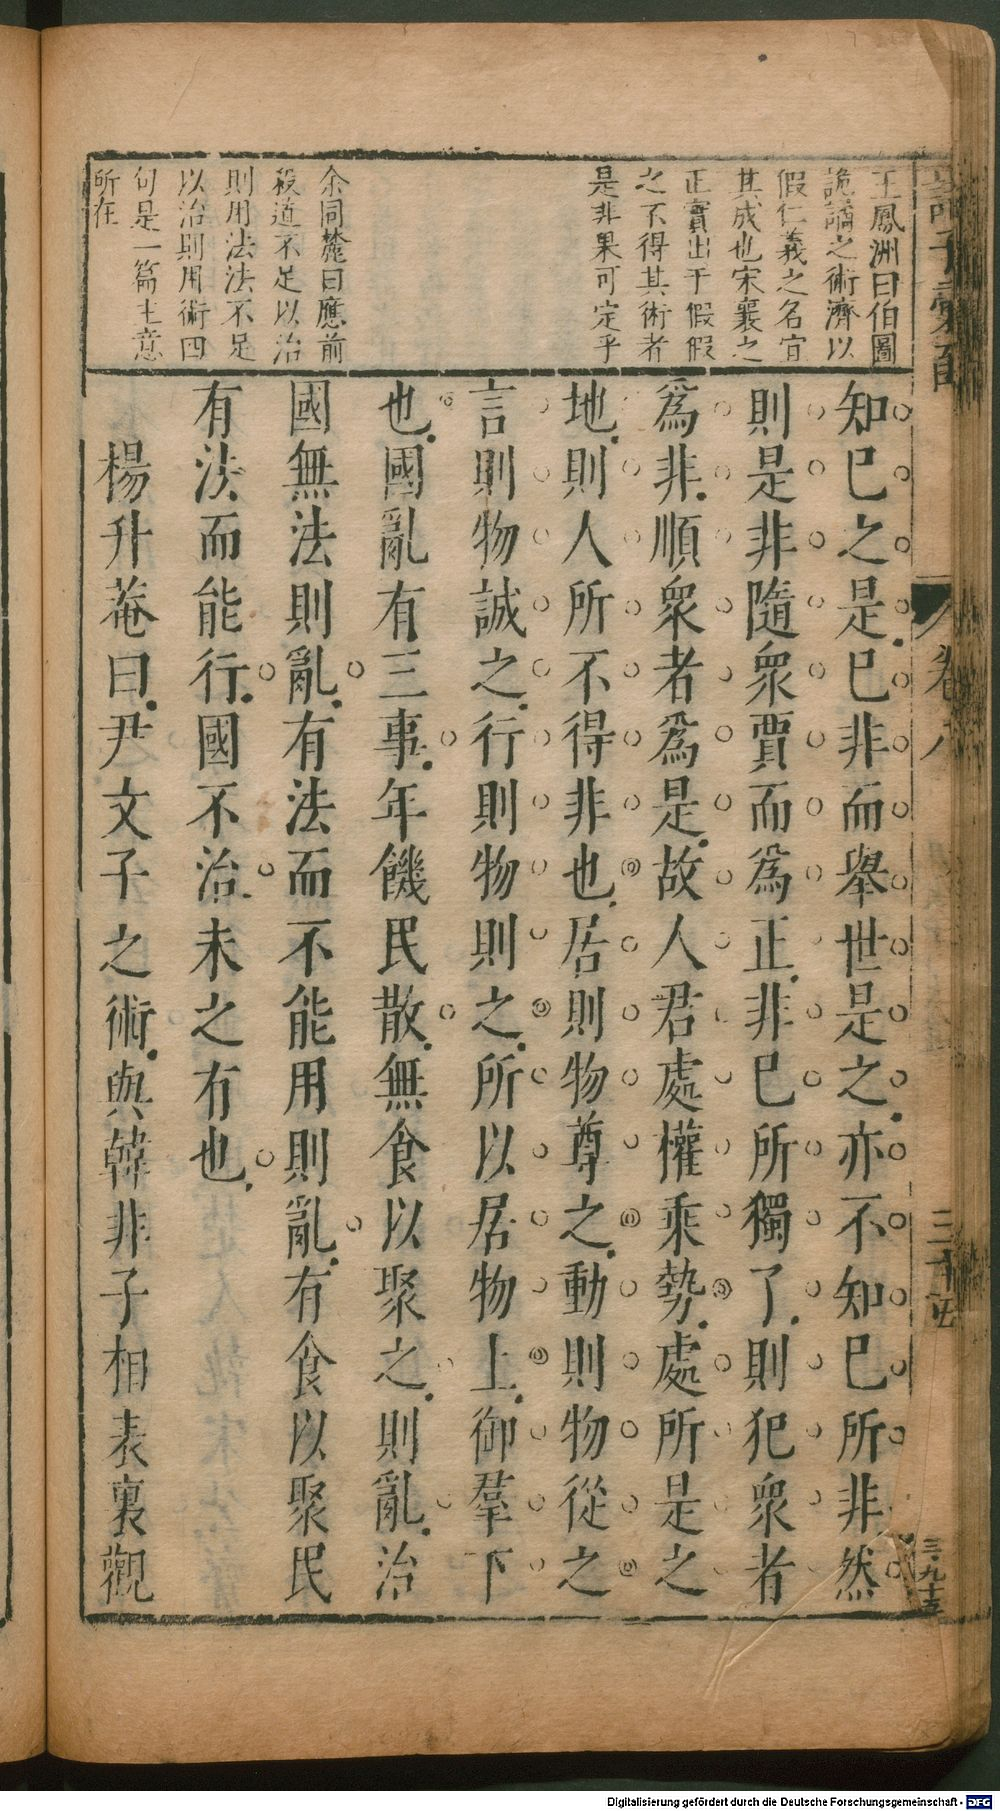 王鳳洲曰伯圖
詭譎之術濟以
假仁義之名宜
其成也宋襄之
正實出于假假
之不得其術者
是非果可定乎
余同麓曰應前
殺道不足以治
則用法法不足
以治則用術四
句是一篇主意
所在
知已之是已非而舉世是之亦不知已所非然
則是非隨衆賈而爲正非已所獨了則犯衆者
爲非順衆者爲是故人君處權乘勢處所是之
地則人所不得非也居則物尊之動則物從之
言則物誠之行則物則之所以居物上御羣下
也國亂有三事年饑民散無食以聚之則亂治
國無法則亂有法而不能用則亂有食以聚民
有法而能行國不治未之有也
楊升菴曰尹文子之術與韓非子相表裏觀
卷八
三九十五
Digitalisierung gefördert durch die Deutsche Forschungsgemeinschaft - DFG